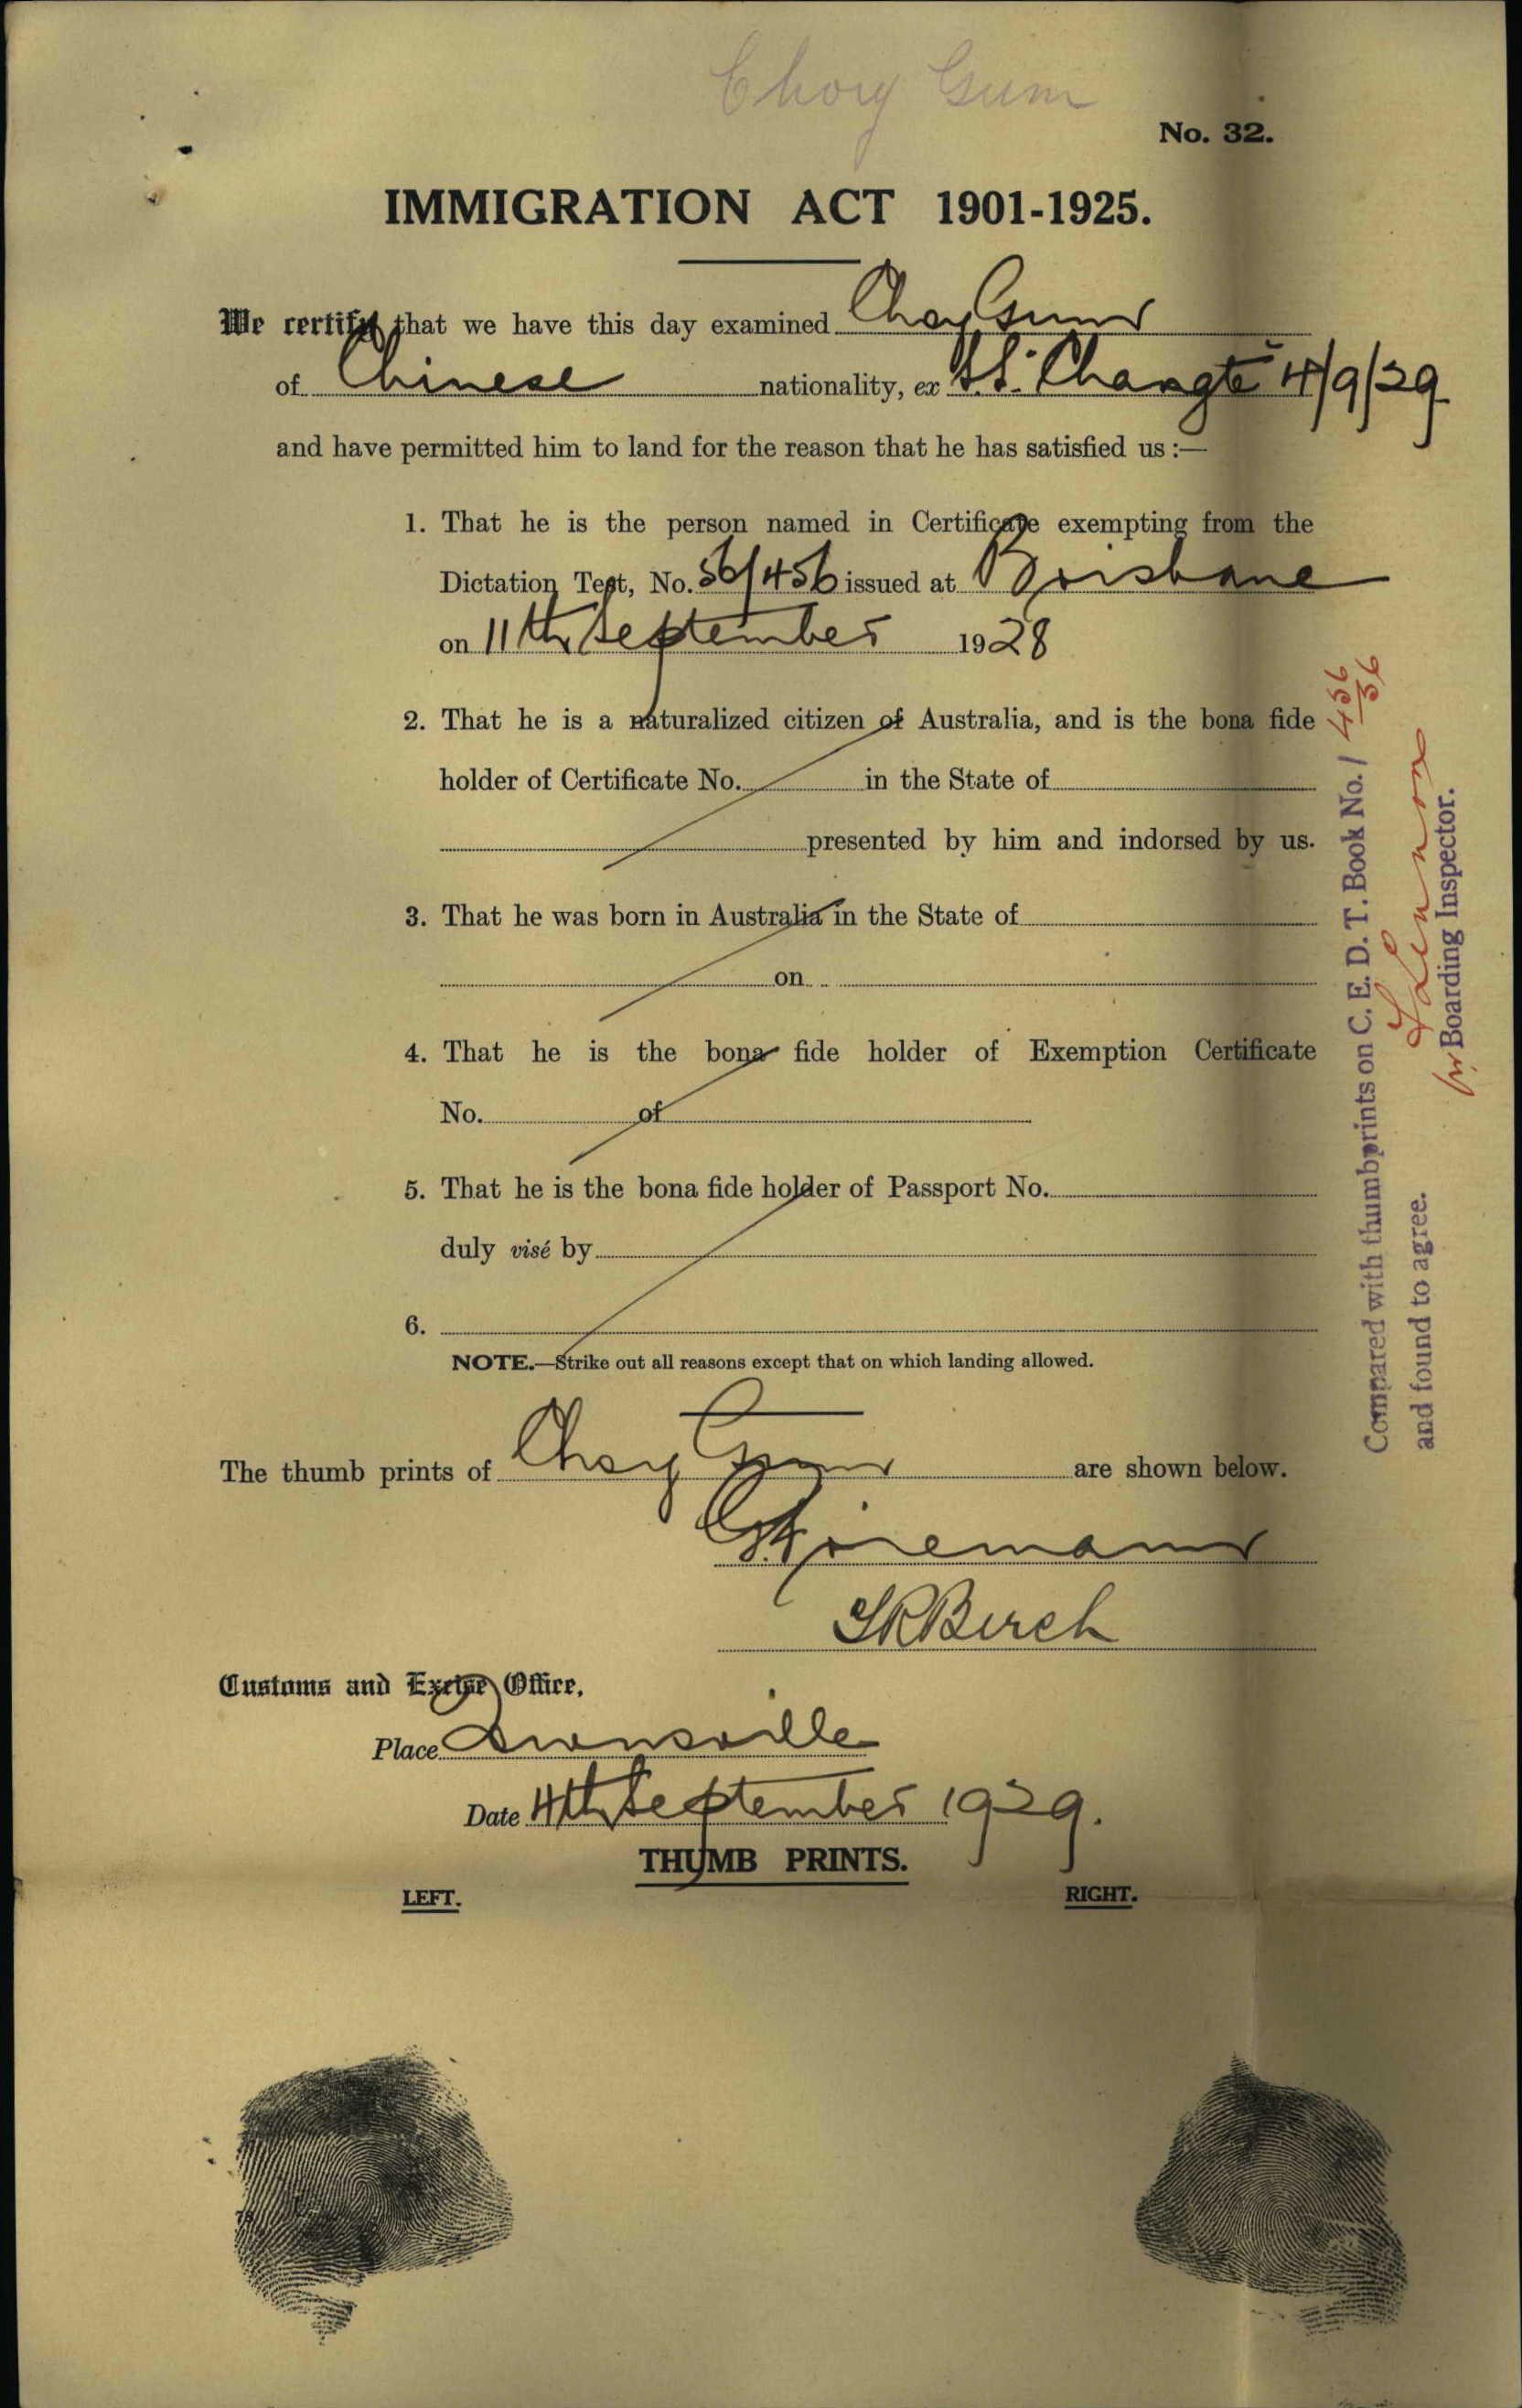 Choy Gum
No. 32.
IMMIGRATION ACT 1901-1925.
We certify that we have this day examined Choy Gum
of Chinese nationality, ex S.S. Changte 4/9/29
and have permitted him to land for the reason that he has satisfied us :—
1. That he is the person named in Certificate exempting from the
Dictation Test, No. 56/456 issued at Brisbane
on 11th September 1928
2. That he is a naturalized citizen of Australia, and is the bona fide
holder of Certificate No. in the State of
presented by him and indorsed by us.
3. That he was born in Australia in the State of
on
4. That he is the bona fide holder of Exemption Certificate
No. of
5. That he is the bona fide holder of Passport No.
duly visé by
6.
NOTE.—Strike out all reasons except that on which landing allowed.
The thumb prints of Choy Gum are shown below.
SRBirch
Customs and Excise Office,
Place Townsville
Date 4th September 1929.
THUMB PRINTS.
LEFT. RIGHT.
Compared with thumbprints on C. E. D. T. Book No. / 456/56
and found to agree.
Boarding Inspector.